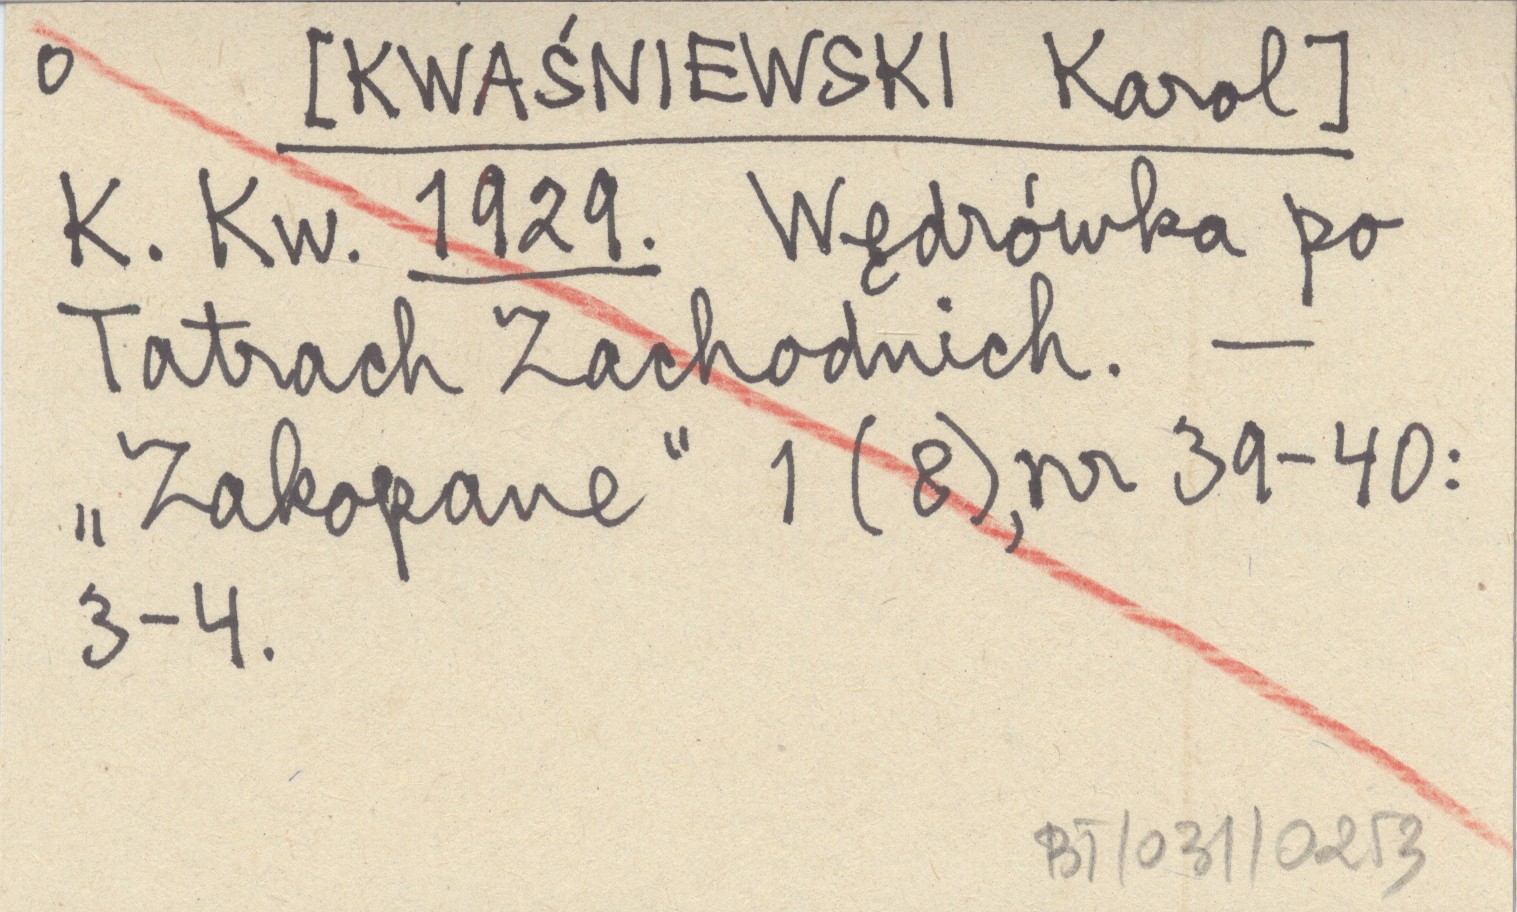 o [KWAŚNIEWSKI Karol]
K. Kw. 1929. Wędrówka po
Tatrach Zachodnich. —
„Zakopane" 1 (8), nr 39-40:
3-4.
BT/031/0253